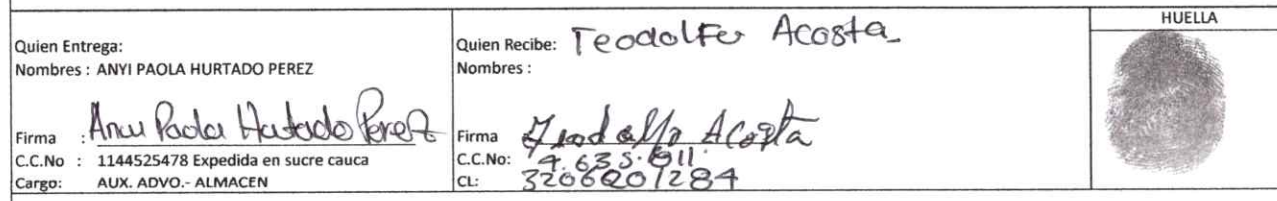 HUELLA
Quien Entrega:
Nombres : ANYI PAOLA HURTADO PEREZ
Firma : Anyi Paola Hurtado Perez
C.C.No : 1144525478 Expedida en sucre cauca
Cargo: AUX. ADVO.- ALMACEN
Quien Recibe: Teodolfo Acosta
Nombres :
Firma Teodolfo Acosta
C.C.No: 4.635.011
CL: 3206201284